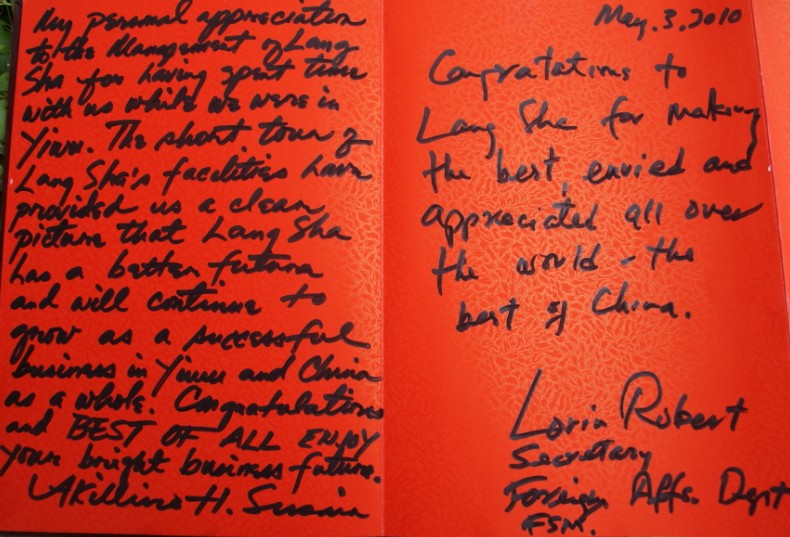 My personal appreciation
to the Management of Lang
Sha for having spent time
with us while we were in
Yiwu. The short tour of
Lang Sha's facilities have
provided us a clear
picture that Lang Sha
has a better future
and will continue to
grow as a successful
business in Yiwu and China
as a whole. Congratulations
and BEST OF ALL ENJOY
your bright business future.
Akillino H. Susaia
May. 3. 2010
Congratations to
Lang Sha for making
the best, envied and
appreciated all over
the world - the
best of China.
Lorin Robert
Secretary
Foreign Affs. Dept
FSM.